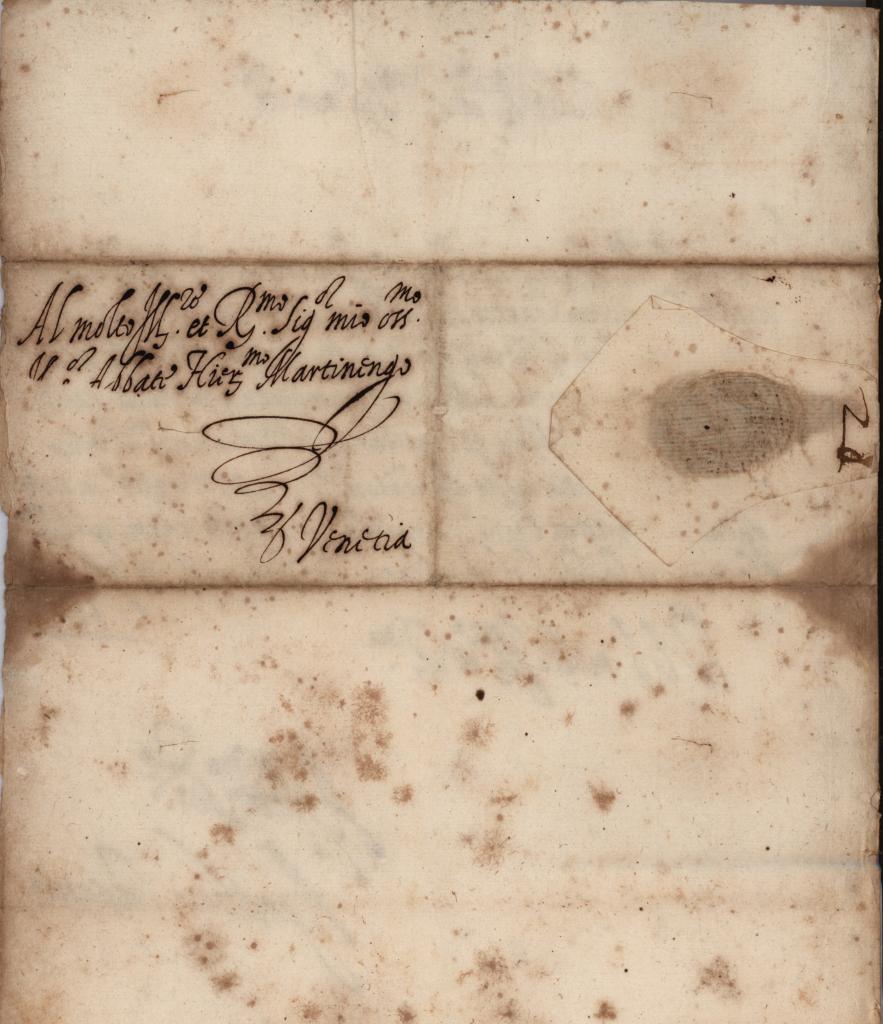 Al molto Ill.re et R.mo Sig.or mio oss.mo
Il S.or Abbate Hier.mo Martinengo
Venetia